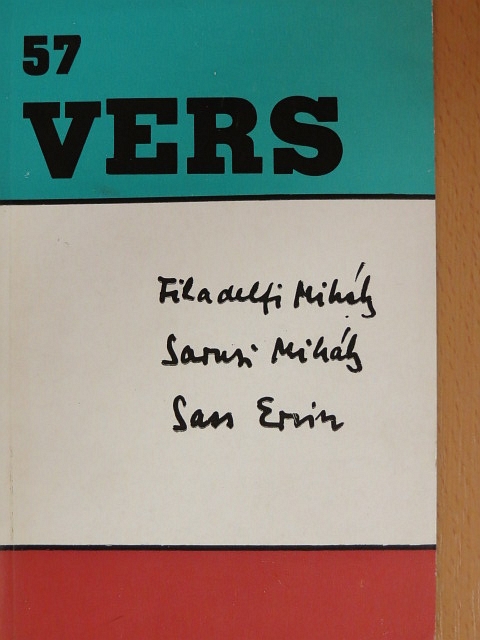 57
VERS
Filadelfi Mihály
Sarusi Mihály
Sass Ervin